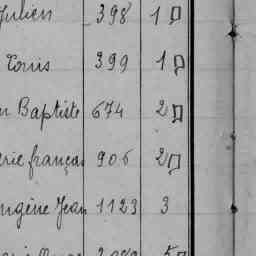 Julien 398 1
Louis 399 1
n Baptiste 674 2
rie françois 906 2
ugène Jean 1123 3